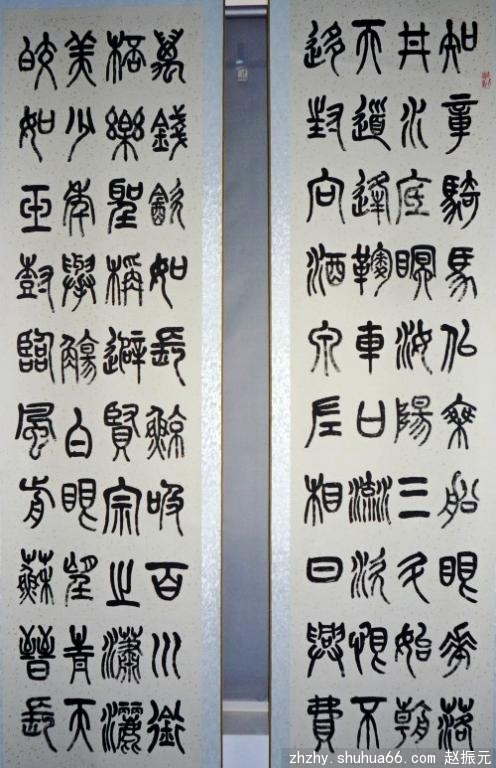 知章騎馬似乘船眼花落
井水底眠汝陽三斗始朝
天道逢麴車口流涎恨不
移封向酒泉左相日興費
萬錢飲如長鯨吸百川銜
杯樂聖稱避賢宗之瀟灑
美少年舉觴白眼望青天
皎如玉樹臨風前蘇晉長
zhzhy.shuhua66.com 赵振元